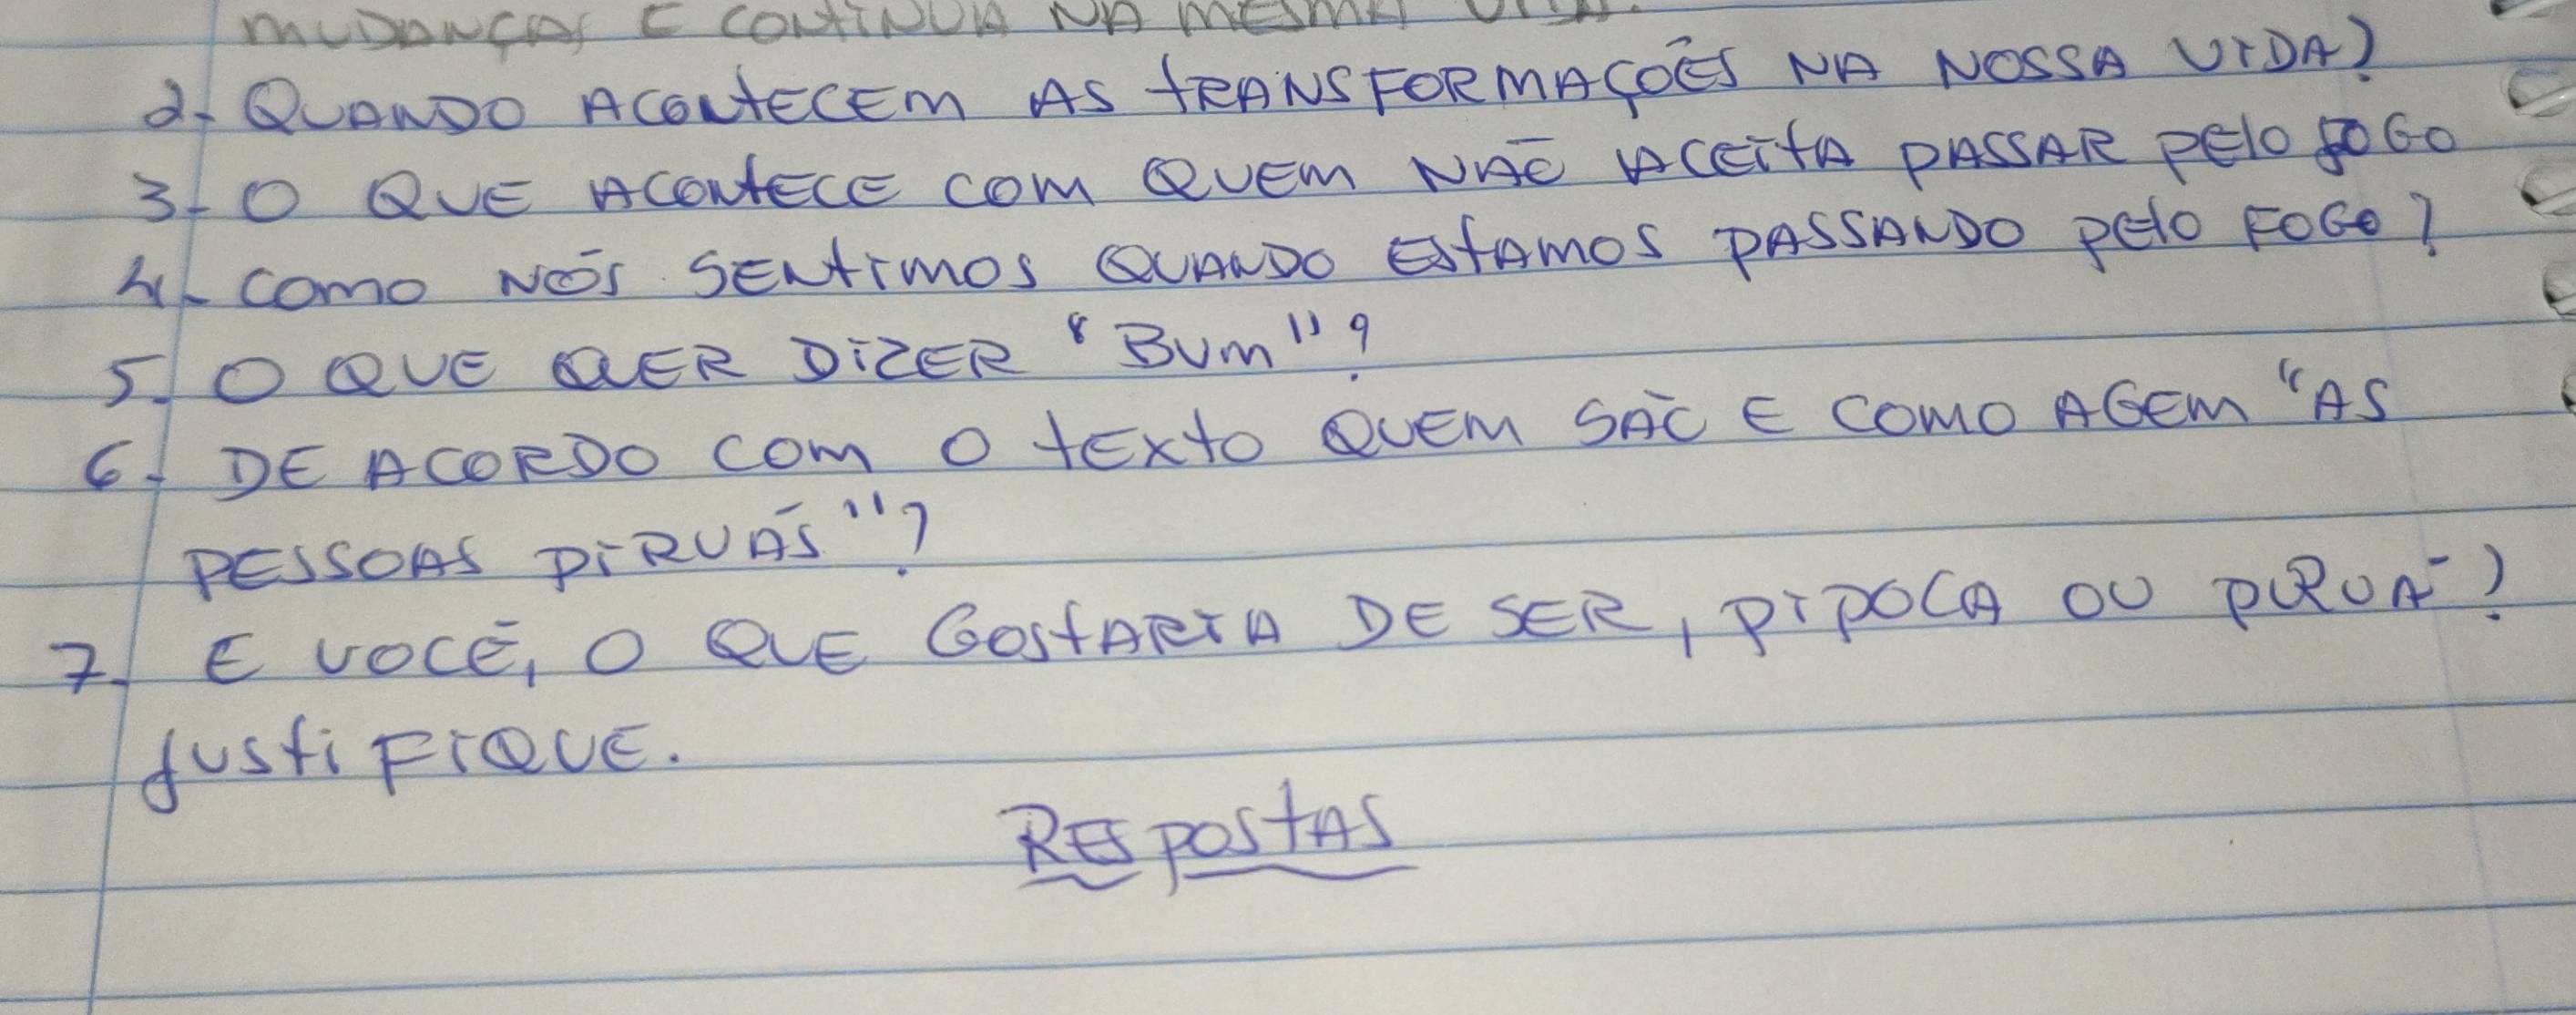 MUDANÇAS E CONTINUA NA MESMA VIDA.
2- QUANDO ACONTECEM AS TRANSFORMAÇÕES NA NOSSA VIDA?
3- O QUE ACONTECE COM QUEM NÃO ACEITA PASSAR PELO FOGO
4- COMO NÓS SENTIMOS QUANDO ESTAMOS PASSANDO PELO FOGO?
5- O QUE QUER DIZER "BUM"?
6- DE ACORDO COM O TEXTO QUEM SÃO E COMO AGEM "AS
PESSOAS PIRUÁS"?
7- E VOCÊ, O QUE GOSTARIA DE SER, PIPOCA OU PIRUÁ?
JUSTIFIQUE.
RESPOSTAS